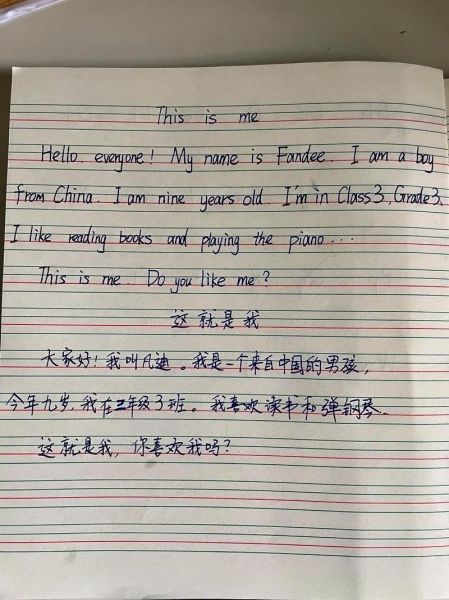 This is me
Hello everyone! My name is Fandee. I am a boy
from China. I am nine years old. I'm in Class3, Grade3.
I like reading books and playing the piano...
This is me. Do you like me?
这就是我
大家好!我叫凡迪。我是一个来自中国的男孩,
今年九岁,我在三年级3班。我喜欢读书和弹钢琴..
这就是我,你喜欢我吗?